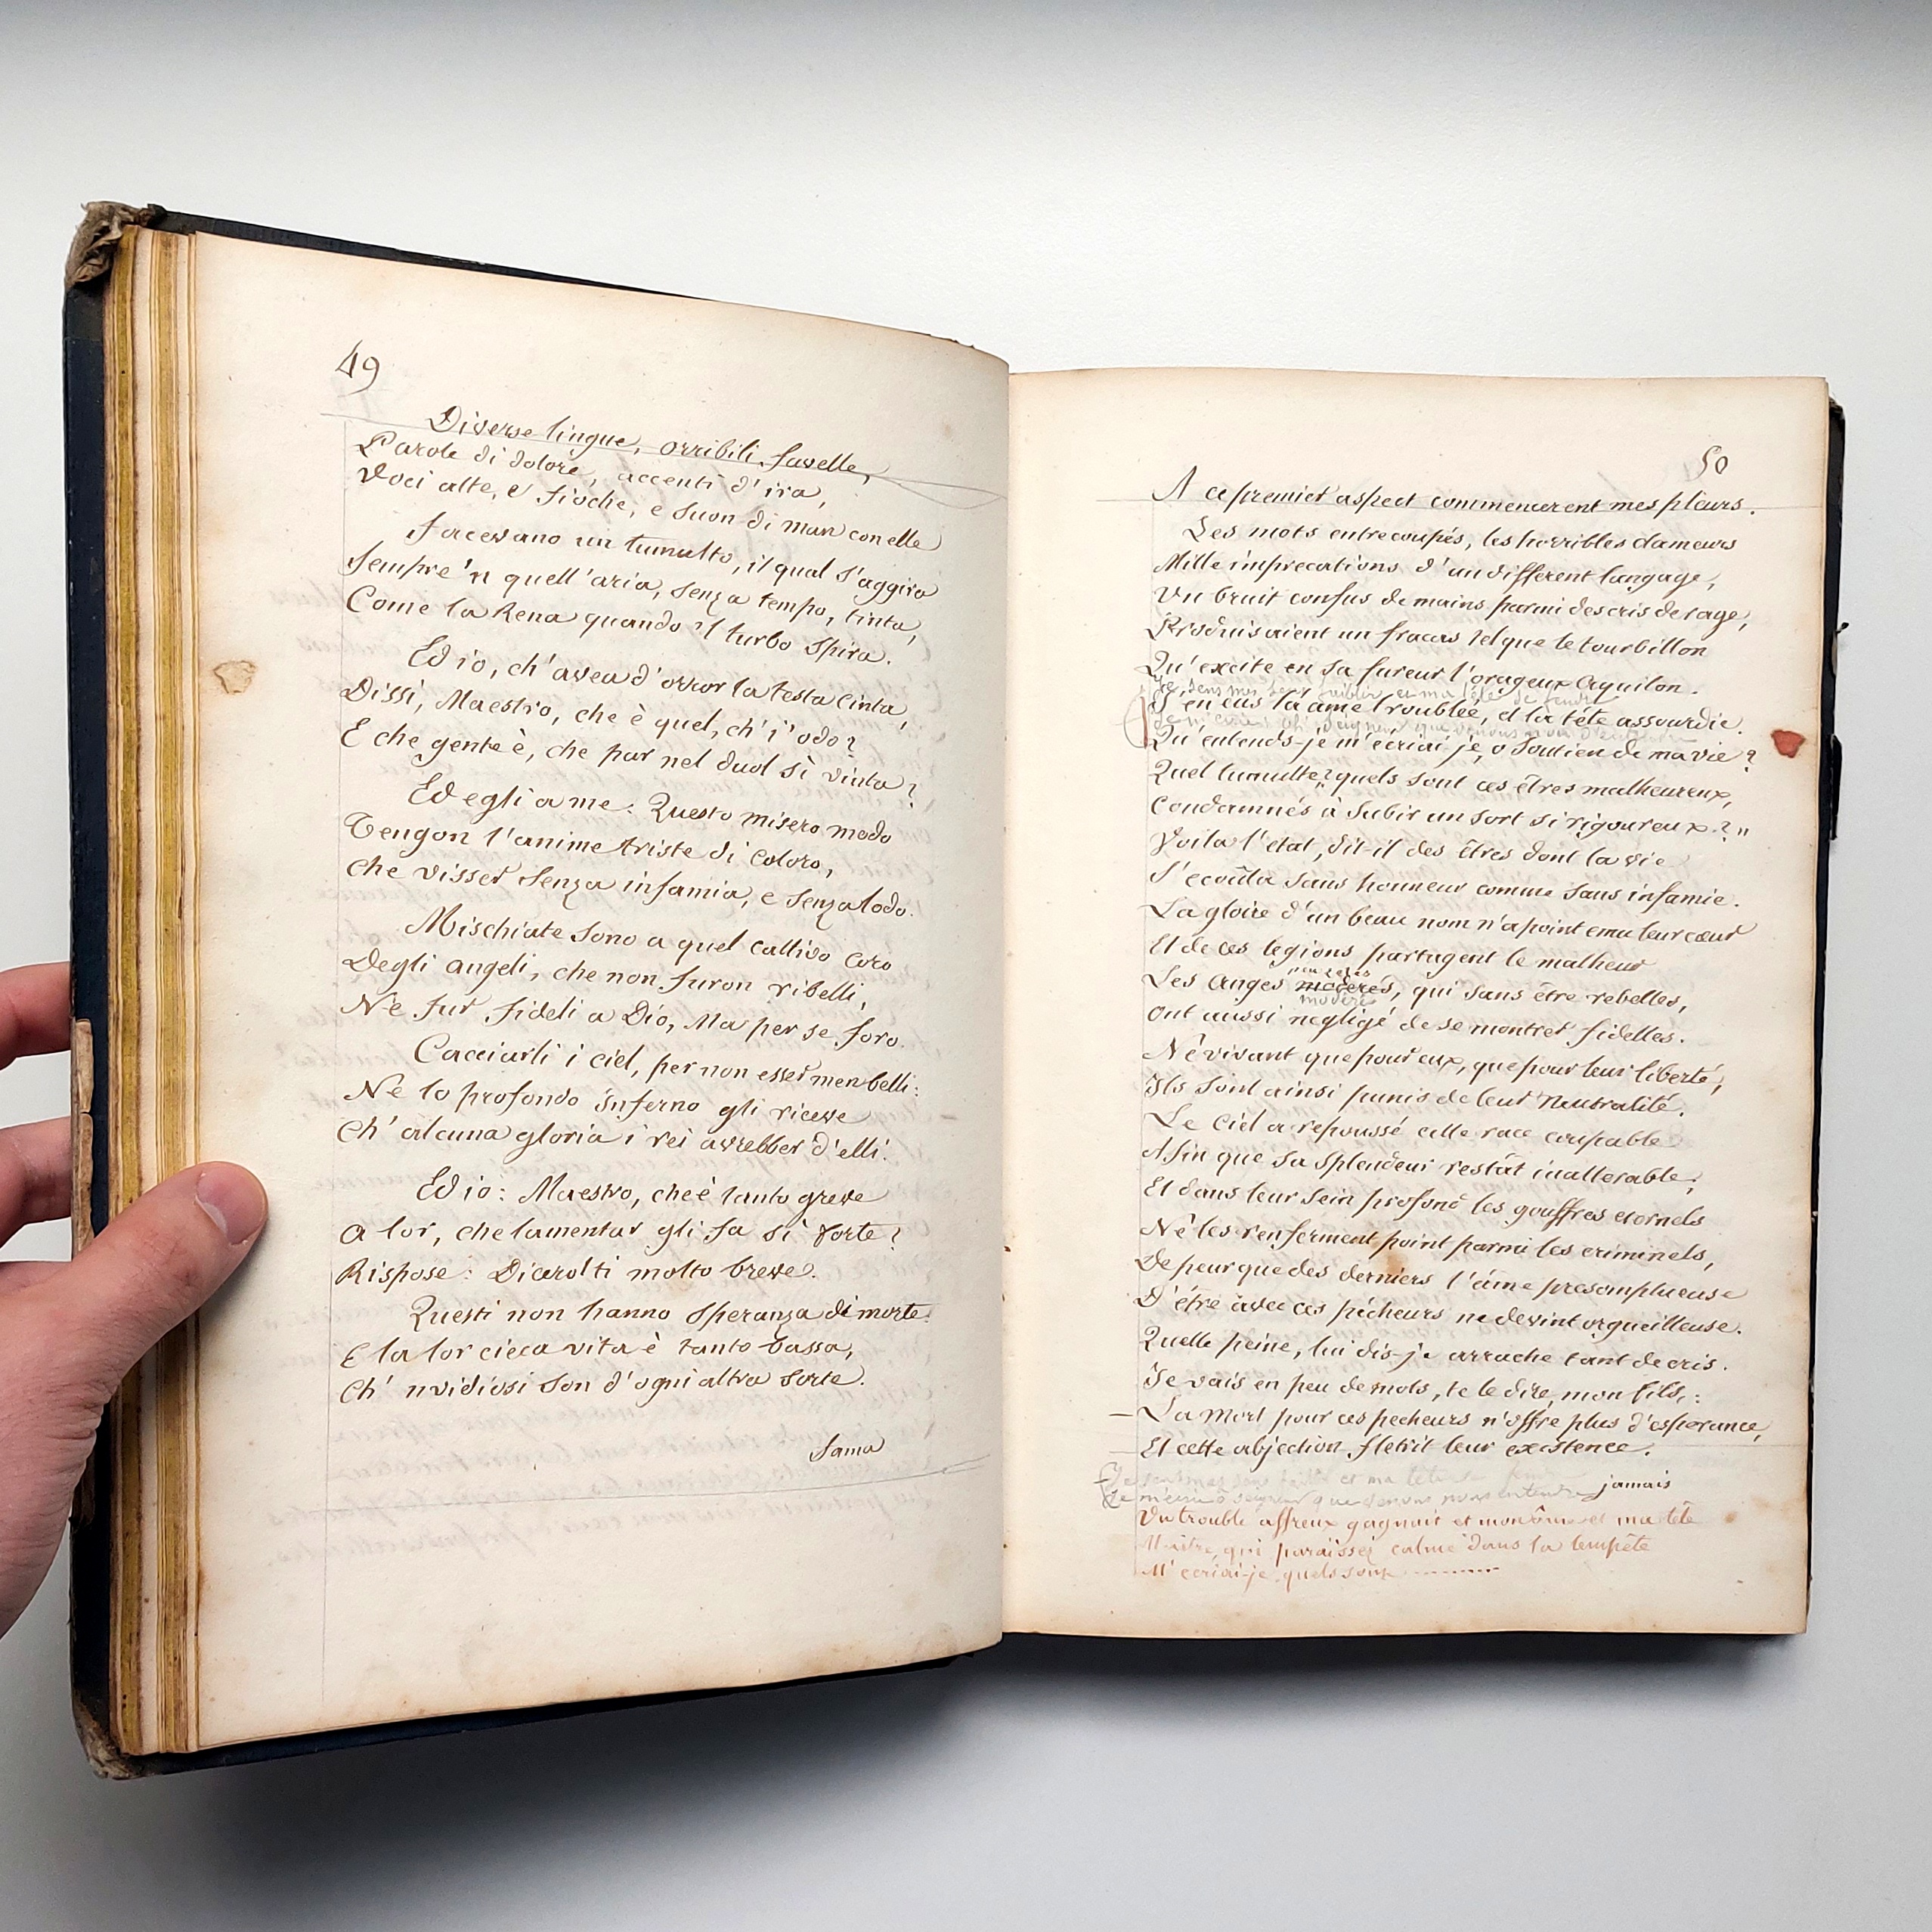 49
Diverse lingue, orribili favelle,
Parole di dolore, accenti d'ira,
Voci alte, e fioche, e suon di man con elle
Facevano un tumulto, il qual s'aggira
Sempre 'n quell'aria, senza tempo, tinta,
Come la Rena quando 'l turbo spira.
Ed io, ch'avea d'orror la testa cinta,
Dissi, Maestro, che è quel, ch'i' odo?
E che gente è, che par nel duol sì vinta?
Ed egli a me: Questo misero modo
Tengon l'anime triste di coloro,
Che visser senza infamia, e senza lodo.
Mischiate sono a quel cattivo coro
Degli angeli, che non furon ribelli,
Ne fur fideli a Dio, Ma per se foro.
Cacciarli i ciel, per non esser men belli:
Ne lo profondo inferno gli riceve
Ch'alcuna gloria i rei avrebber d'elli.
Ed io: Maestro, che è tanto greve
A lor, che lamentar gli fa sì forte?
Rispose: Dicerolti molto breve.
Questi non hanno speranza di morte:
E la lor cieca vita è tanto bassa,
Ch' nvidiosi son d'ogni altra sorte.
Fama
50
A ce premier aspect commencerent mes pleurs.
Les mots entrecoupés, les horribles clameurs
Mille imprecations d'un different langage,
Un bruit confus de mains parmi des cris de rage,
Produisaient un fracas tel que le tourbillon
Qu'excite en sa fureur l'orageux Aquilon.
Je sens mes sens faiblir et ma tête se fendre
J'en eus la âme troublée, et la tête assourdie.
Je m'écriai seigneur que venons nous d'entendre
Qu'entends-je m'ecriai-je, o soutien de ma vie?
Quel tumulte? quels sont ces êtres malheureux,
Condamnés à subir un sort si rigoureux?"
Voila l'etat, dit-il des êtres dont la vie
S'ecoûla sans honneur comme sans infamie.
La gloire d'un beau nom n'a point emu leur cœur
Et de ces legions partagent le malheur
Les Anges moderés, qui sans être rebelles,
moderés
Ont aussi negligé de se montrer fidelles.
Nê vivant que pour eux, que pour leur liberté,
Ils sont ainsi punis de leur neutralité.
Le Ciel a repoussé cette race coupable
Afin que sa splendeur restât inalterable;
Et dans leur sein profond les gouffres eternels
Nê les renferment point parmi les criminels,
De peur que des derniers l'âme presomptueuse
D'être avec ces pécheurs ne devint orgueilleuse.
Quelle peine, lui dis-je arrache tant de cris.
Je vais en peu de mots, te le dire, mon fils,:
La Mort pour ces pecheurs n'offre plus d'esperance,
Et cette abjection fletrit leur existence.
Je sens mes sens et ma tête se
jamais
Je m'écriai ô seigneur que venons nous entendre
Un trouble affreux gagnait et mon âme et ma tête
Maître, qui paraissez calme dans la tempête
M'ecriai-je quels sont --------